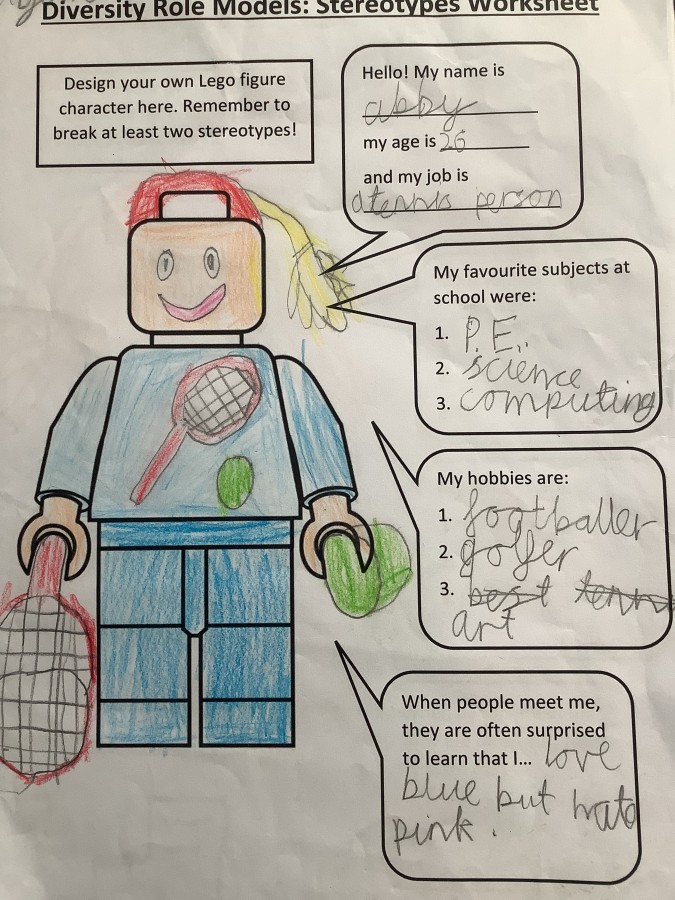 Diversity Role Models: Stereotypes Worksheet
Design your own Lego figure
character here. Remember to
break at least two stereotypes!
Hello! My name is
abby
my age is 26
and my job is
a tennis person
My favourite subjects at
school were:
1. P.E.
2. science
3. computing
My hobbies are:
1. footballer
2. golfer
3. best tenn
art
When people meet me,
they are often surprised
to learn that I... love
blue but hate
pink.